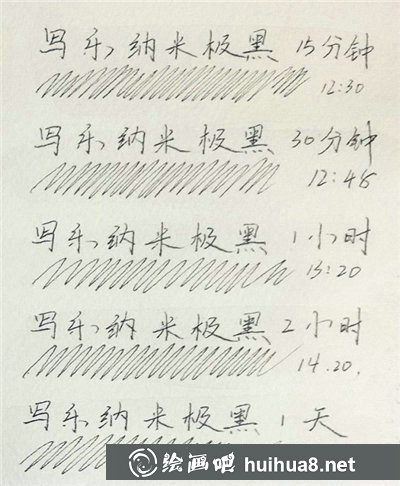 写乐纳米极黑 15分钟
12:30
写乐纳米极黑 30分钟
12:48
写乐纳米极黑 1小时
13:20
写乐纳米极黑 2小时
14.20.
写乐纳米极黑 1天
绘画吧 huihua8.net